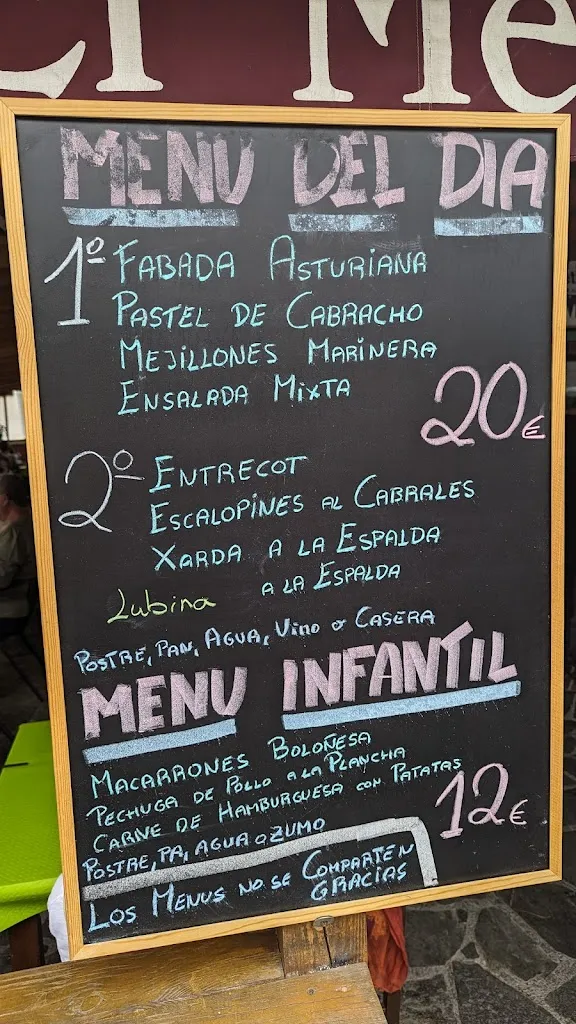 MENU DEL DIA
1º FABADA ASTURIANA
PASTEL DE CABRACHO
MEJILLONES MARINERA
ENSALADA MIXTA
20€
2º ENTRECOT
ESCALOPINES AL CABRALES
XARDA A LA ESPALDA
Lubina A LA ESPALDA
POSTRE, PAN, AGUA, VINO O CASERA
MENU INFANTIL
MACARRONES BOLOÑESA
PECHUGA DE POLLO A LA PLANCHA
CARNE DE HAMBURGUESA CON PATATAS
12€
POSTRE, PA, AGUA O ZUMO
LOS MENUS NO SE COMPARTEN
GRACIAS